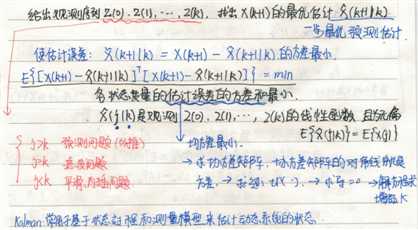 给出观测序列 Z(0), Z(1), …, Z(k), 找出 X(k+1) 的最优估计 X̂(k+1|k)
一步最优预测估计
使估计误差: X̃(k+1|k) = X(k+1) - X̂(k+1|k) 的方差最小.
E{[X(k+1) - X̂(k+1|k)]ᵀ[X(k+1) - X̂(k+1|k)]} = min
各状态变量的估计误差的方差和最小.
X̂(j|k) 是观测 Z(0), Z(1), …, Z(k) 的线性函数, 且无偏
E{X̂(j|k)} = E{X(j)}
j>k 预测问题
j=k 滤波问题
j<k 平滑、内插问题
均方差最小
→ 求协方差矩阵, 协方差矩阵的对角线即是
方差, → 求迹: tr(·), → 求导=0 → 解方程求
增益 K
Kalman 常用于基于状态方程和测量模型来估计动态系统的状态.